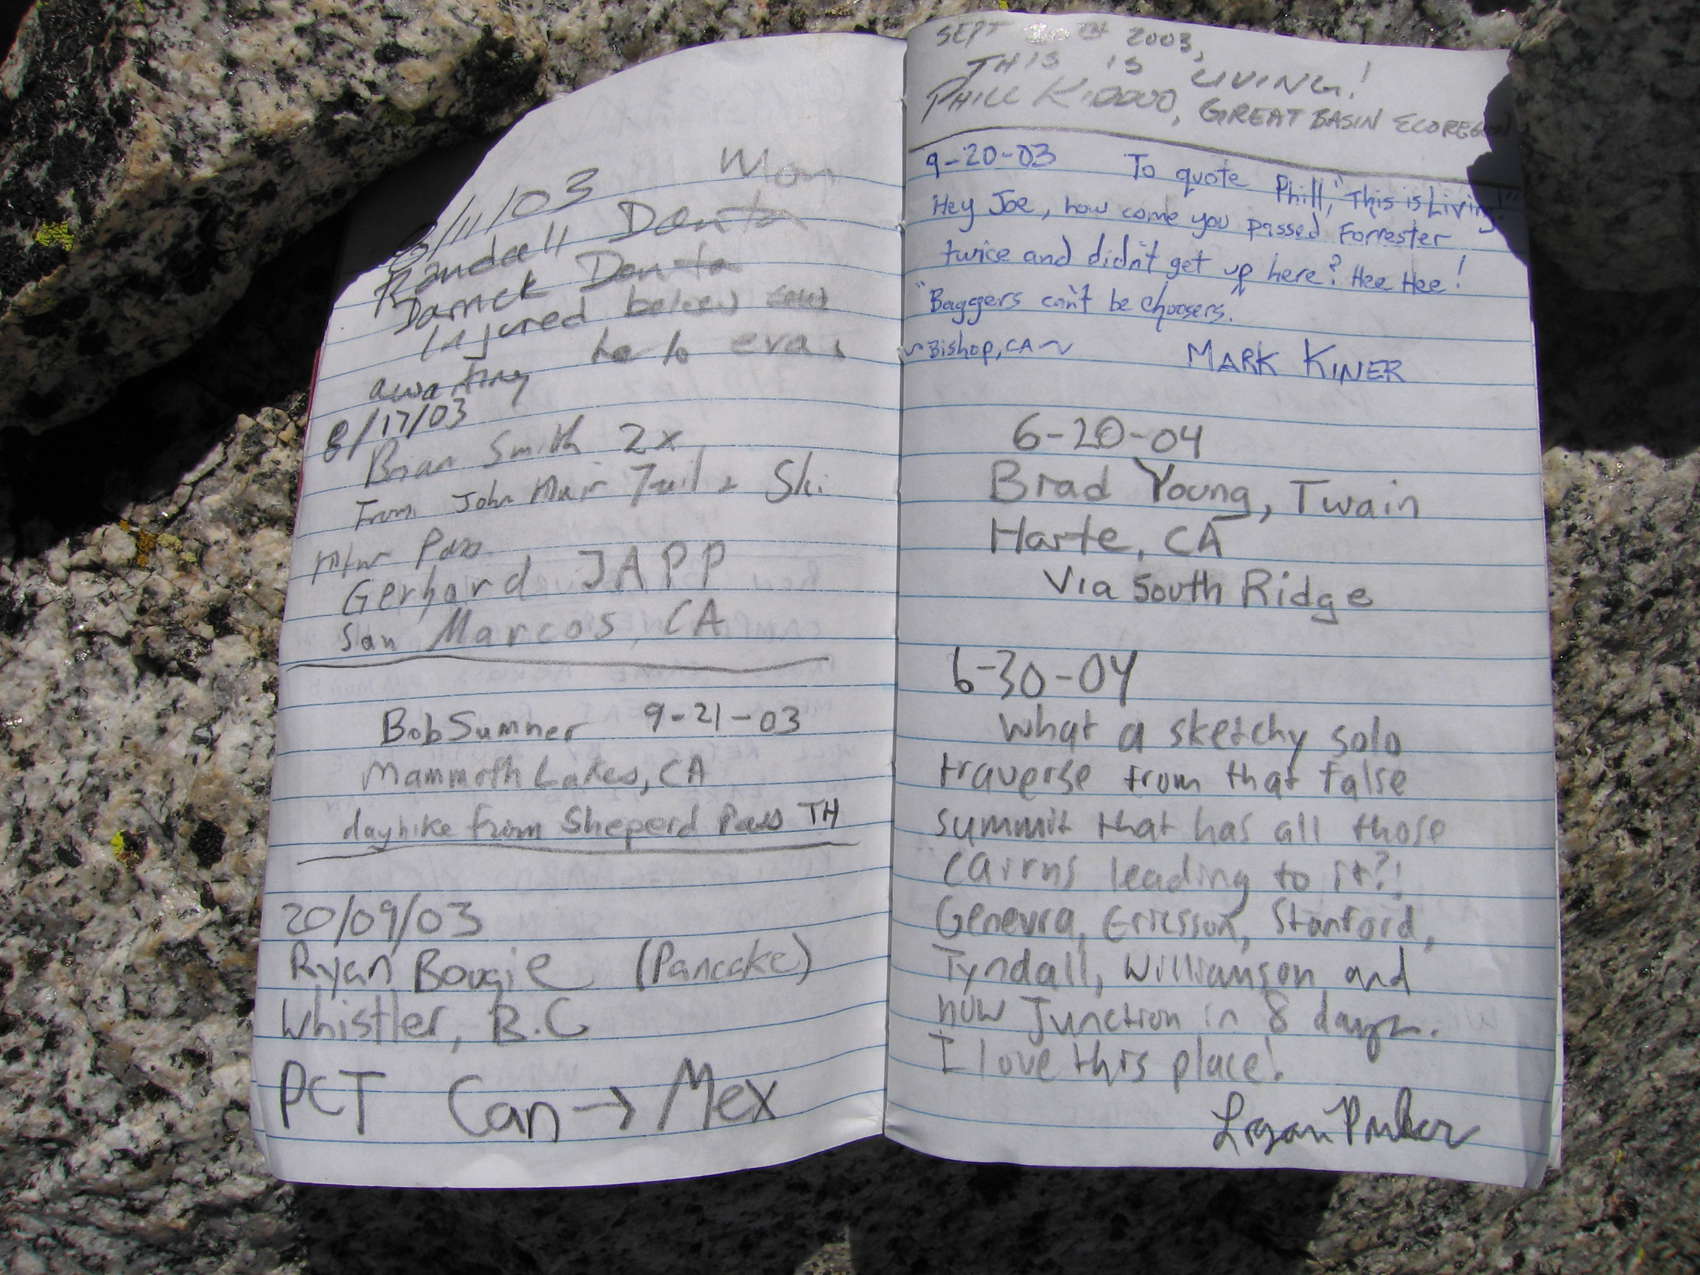 /11/03 Mon
Randall Danta
Darrick Danta
Injured below
awaiting
8/17/03
Brian Smith 2x
From John Muir Trail + Ski
Mtnr Pass
Gerhard JAPP
San Marcos, CA
Bob Sumner 9-21-03
Mammoth Lakes, CA
dayhike from Sheperd Pass TH
20/09/03
Ryan Bougie (Pancake)
Whistler, B.C
PCT Can → Mex
SEPT 20TH 2003,
THIS IS LIVING!
PHILL KIDDOO, GREAT BASIN ECOREGION
9-20-03 To quote Phill, "This is Living!"
Hey Joe, how come you passed Forrester
twice and didn't get up here? Hee Hee!
"Baggers can't be choosers."
~Bishop, CA~ MARK KINER
6-20-04
Brad Young, Twain
Harte, CA
Via South Ridge
6-30-04
What a sketchy solo
traverse from that false
summit that has all those
cairns leading to it?!
Genevra, Ericsson, Stanford,
Tyndall, Williamson, and
now Junction in 8 days.
I love this place!